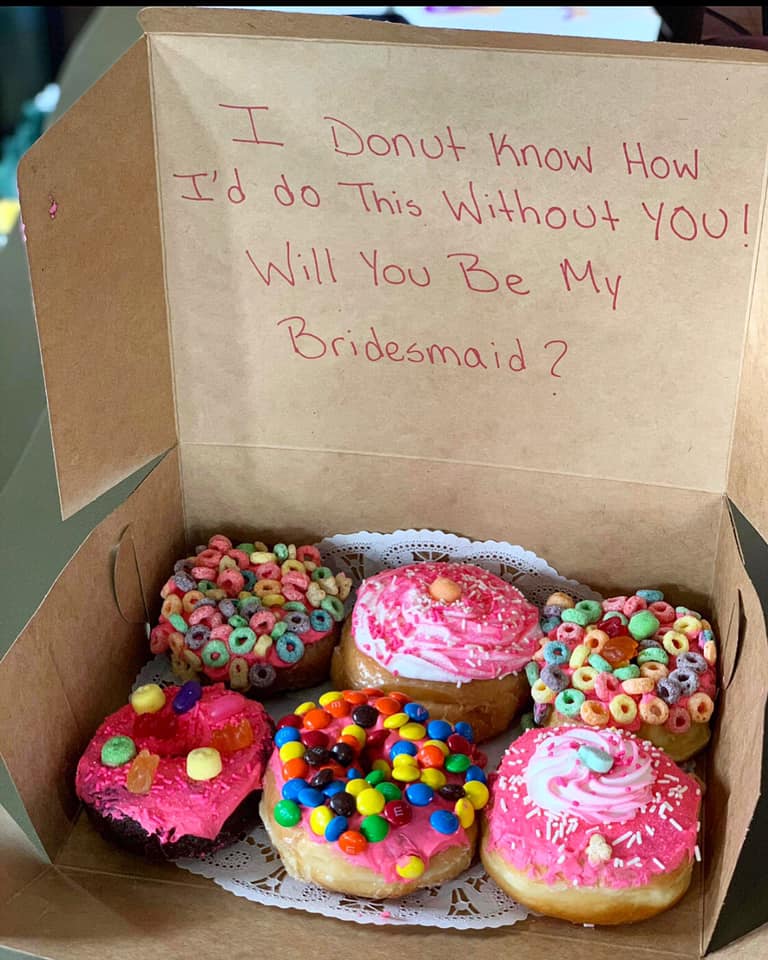 I Donut Know How
I'd do This Without YOU!
Will You Be My
Bridesmaid?